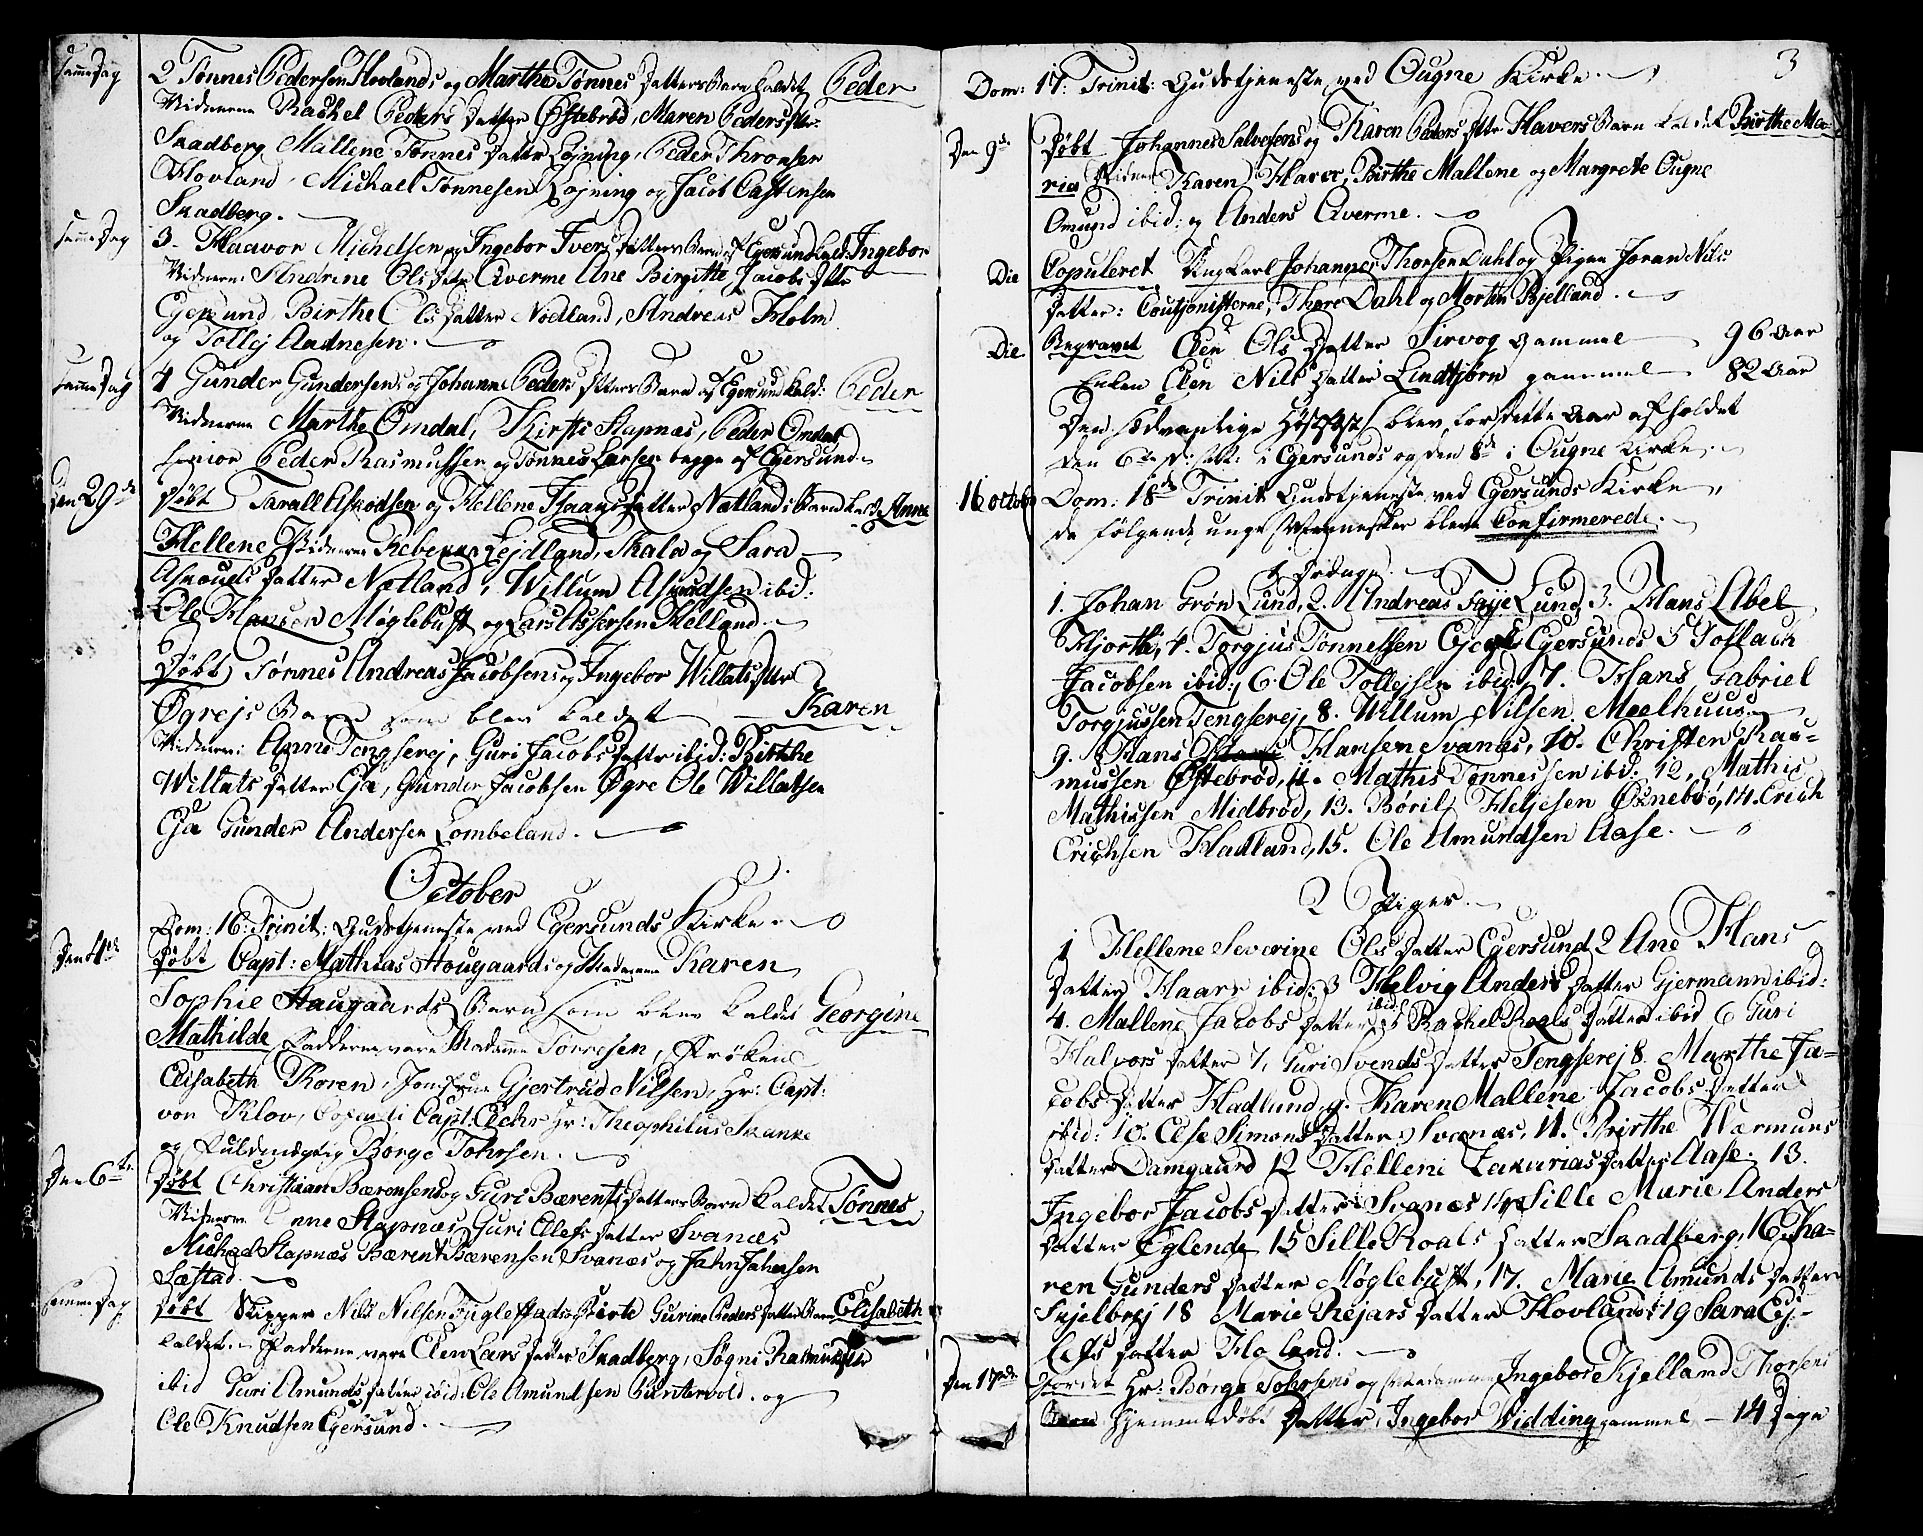 Samme Dag
2 Tønnes Pedersen Hovlands og Marthe Tønnes Datters Barn kaldet Peder
Vidnerne Rachel Peders Datter Østebrød, Maren Peders Dttr
Skadberg Mallene Tønnes Datter Løjning, Peder Thronsen
Hovland, Michael Tønnesen Løjning og Jacob Castensen
Skadberg.
Samme Dag
3. Haavor Michelsen og Ingebor Ivers Datters Barn af Egersund kald: Ingebor
Vidnerne Andrine Ols Datr Qverme Ane Birgitte Jacobs Dttr
Egersund, Birthe Ols Datter Nodland, Andreas Holm
og Tollej Andnesen.
Samme Dag
4 Gunder Gundersens og Johanne Peders Dtters Barn af Egersund kald: Peder
Vidnerne Marthe Omdal, Kirsti Stapnæs, Peder Omdal
senior Peder Rasmussen og Tønnes Larsen begge af Egersund.
Den 29de
Døbt Taralt Askodsen og Hellene Haagsdatters Nætlands Barn kaldt Anne
Hellene Vidnerne Rebecca Lejdland, Skala og Sara
Asmouds Datter Nætland, Willum Asmudsen ibid:
Ole Hansen Møglebust og Lars Assersen Helland.
Døbt Tønnes Andreas Jacobsens og Ingebor Willats Dttr
Øgrejs Barn som blev kaldet Karen
Vidnerne: Anne Tengserej, Guri Jacobs Datter ibid: Birthe
Willats Datter Eja, Gunder Jacobsen Øgre Ole Willatsen
Eja Gunder Andersen Lombeland.
October
Dom: 16: Trinit: Gudstjeneste ved Egersunds Kirke.
Den 4de
Døbt Capt: Mathias Hougaards og Madamme Karen
Sophie Haugaards Barn som blev kaldet Georgine
Mathilde, Fadderne vare Madamme Torresen, Frøken
Elisabeth Koren, Jomfrue Gjertrud Nilsen, Hr: Capt:
von Klov, Capt: Hr: Theophilus Skanke
og Fuldmægtig Børge Tohrsen.
Den 6te
Døbt Christian Bærensens og Guri Bærents Datters Barn kaldet Tønnes
Vidnerne Anne Stapnæs, Guri Ellefs Datter Svanæs
Michael Stapnæs Bærent Bærensen Svanæs og Jahn Jahnsen
Læstad.
Samme Dag
Døbt Skipper Nils Nilsen Fuglestads og Birte Gurine Peders Datters Barn Elisabeth
kaldet. Fadderne vare Elen Lars Datter Skadberg, Søgni Rasmus Dttr
ibid Guri Amunds Datter ibid: Ole Amundsen Puntervold og
Ole Knudsen Egersund.
3
Dom: 17: Trinit: Gudstjeneste ved Ougne Kirke.
Den 9de
Døbt Johannes Salvesens og Karen Peders Dttr Havers Barn kaldet Birthe Ma-
ria Vidner: Karen Haver, Birthe Mallene og Margrete Ougne
Omund ibid: og Anders Qverme.
Die
Copuleret Ungkarl Johannes Thorsen Dahl og Pigen Joran Nils
Datter: Coutionisterne, Thore Dahl og Morten Bjelland.
Die
Begravet Elen Ols Datter Sirvog gammel 96 Aar
Enken Elen Nils Datter Lindtjørn gammel 82 Aar
Den sædvanlige Høstfest blev for dette Aar afholdet
den 6te i Egersunds og den 8de i Ougne Kirke.
16 octobr
Dom: 18de Trinit: Gudstjeneste ved Egersunds Kirke,
da følgende unge Mennesker bleve Confirmerede.
1 Drenge.
1. Johan Grøn Lund, 2. Andreas Faye Lund 3. Hans Abel
Hjorth, 4. Torgjus Tønnessen Eje Egersunds 5 Tollach
Jacobsen ibid:, 6 Ole Tollejsen ibid: 7. Hans Gabriel
Torgjussen Tengserej, 8. Willum Nilsen Meelhuus
9. Hans Hansen Svanæs, 10. Christen Ras-
mussen Østebrød, 11. Mathis Tønnessen ibid. 12, Mathis
Mathiesen Midbrød, 13. Børil Heljesen Øsnebrø, 14. Erich
Erichsen Hadland, 15. Ole Amundsen Aase.
2 Piger.
1 Hellene Severine Ols Datter Egersund 2 Ane Hans
Datter Haarr ibid: 3 Helvig Anders Datter Gjermann ibid:
4. Mallene Jacobs Datter ibid: 5 Rachel Roals Datter ibid 6 Guri
Halvors Datter 7, Guri Svends Datter Tengserej 8. Marthe Ja-
cobs Datter Hadland, 9. Karen Mallene Jacobs Datter
ibid: 10. Else Simons Datter Svanæs, 11. Birthe Wærmuns
Datter Damgaard 12 Hellene Zakarias Datter Aase. 13.
Ingebor Jacobs Datter Svanæs 14 Sille Marie Anders
Datter Eglende 15 Sille Roals Datter Skadberg, 16 Ka-
ren Gunders Datter Møglebust, 17. Marie Amunds Datter
Skjelbrej 18 Marie Rejars Datter Hovland 19 Sara Ej-
lefs Datter Holand.
Den 17nde
Jordet Hr: Børge Tohrsens og Madamme Ingebor Kjelland Thorsens
hjemmedøbt Datter, Ingebor Vidding gammel – 14 Dage